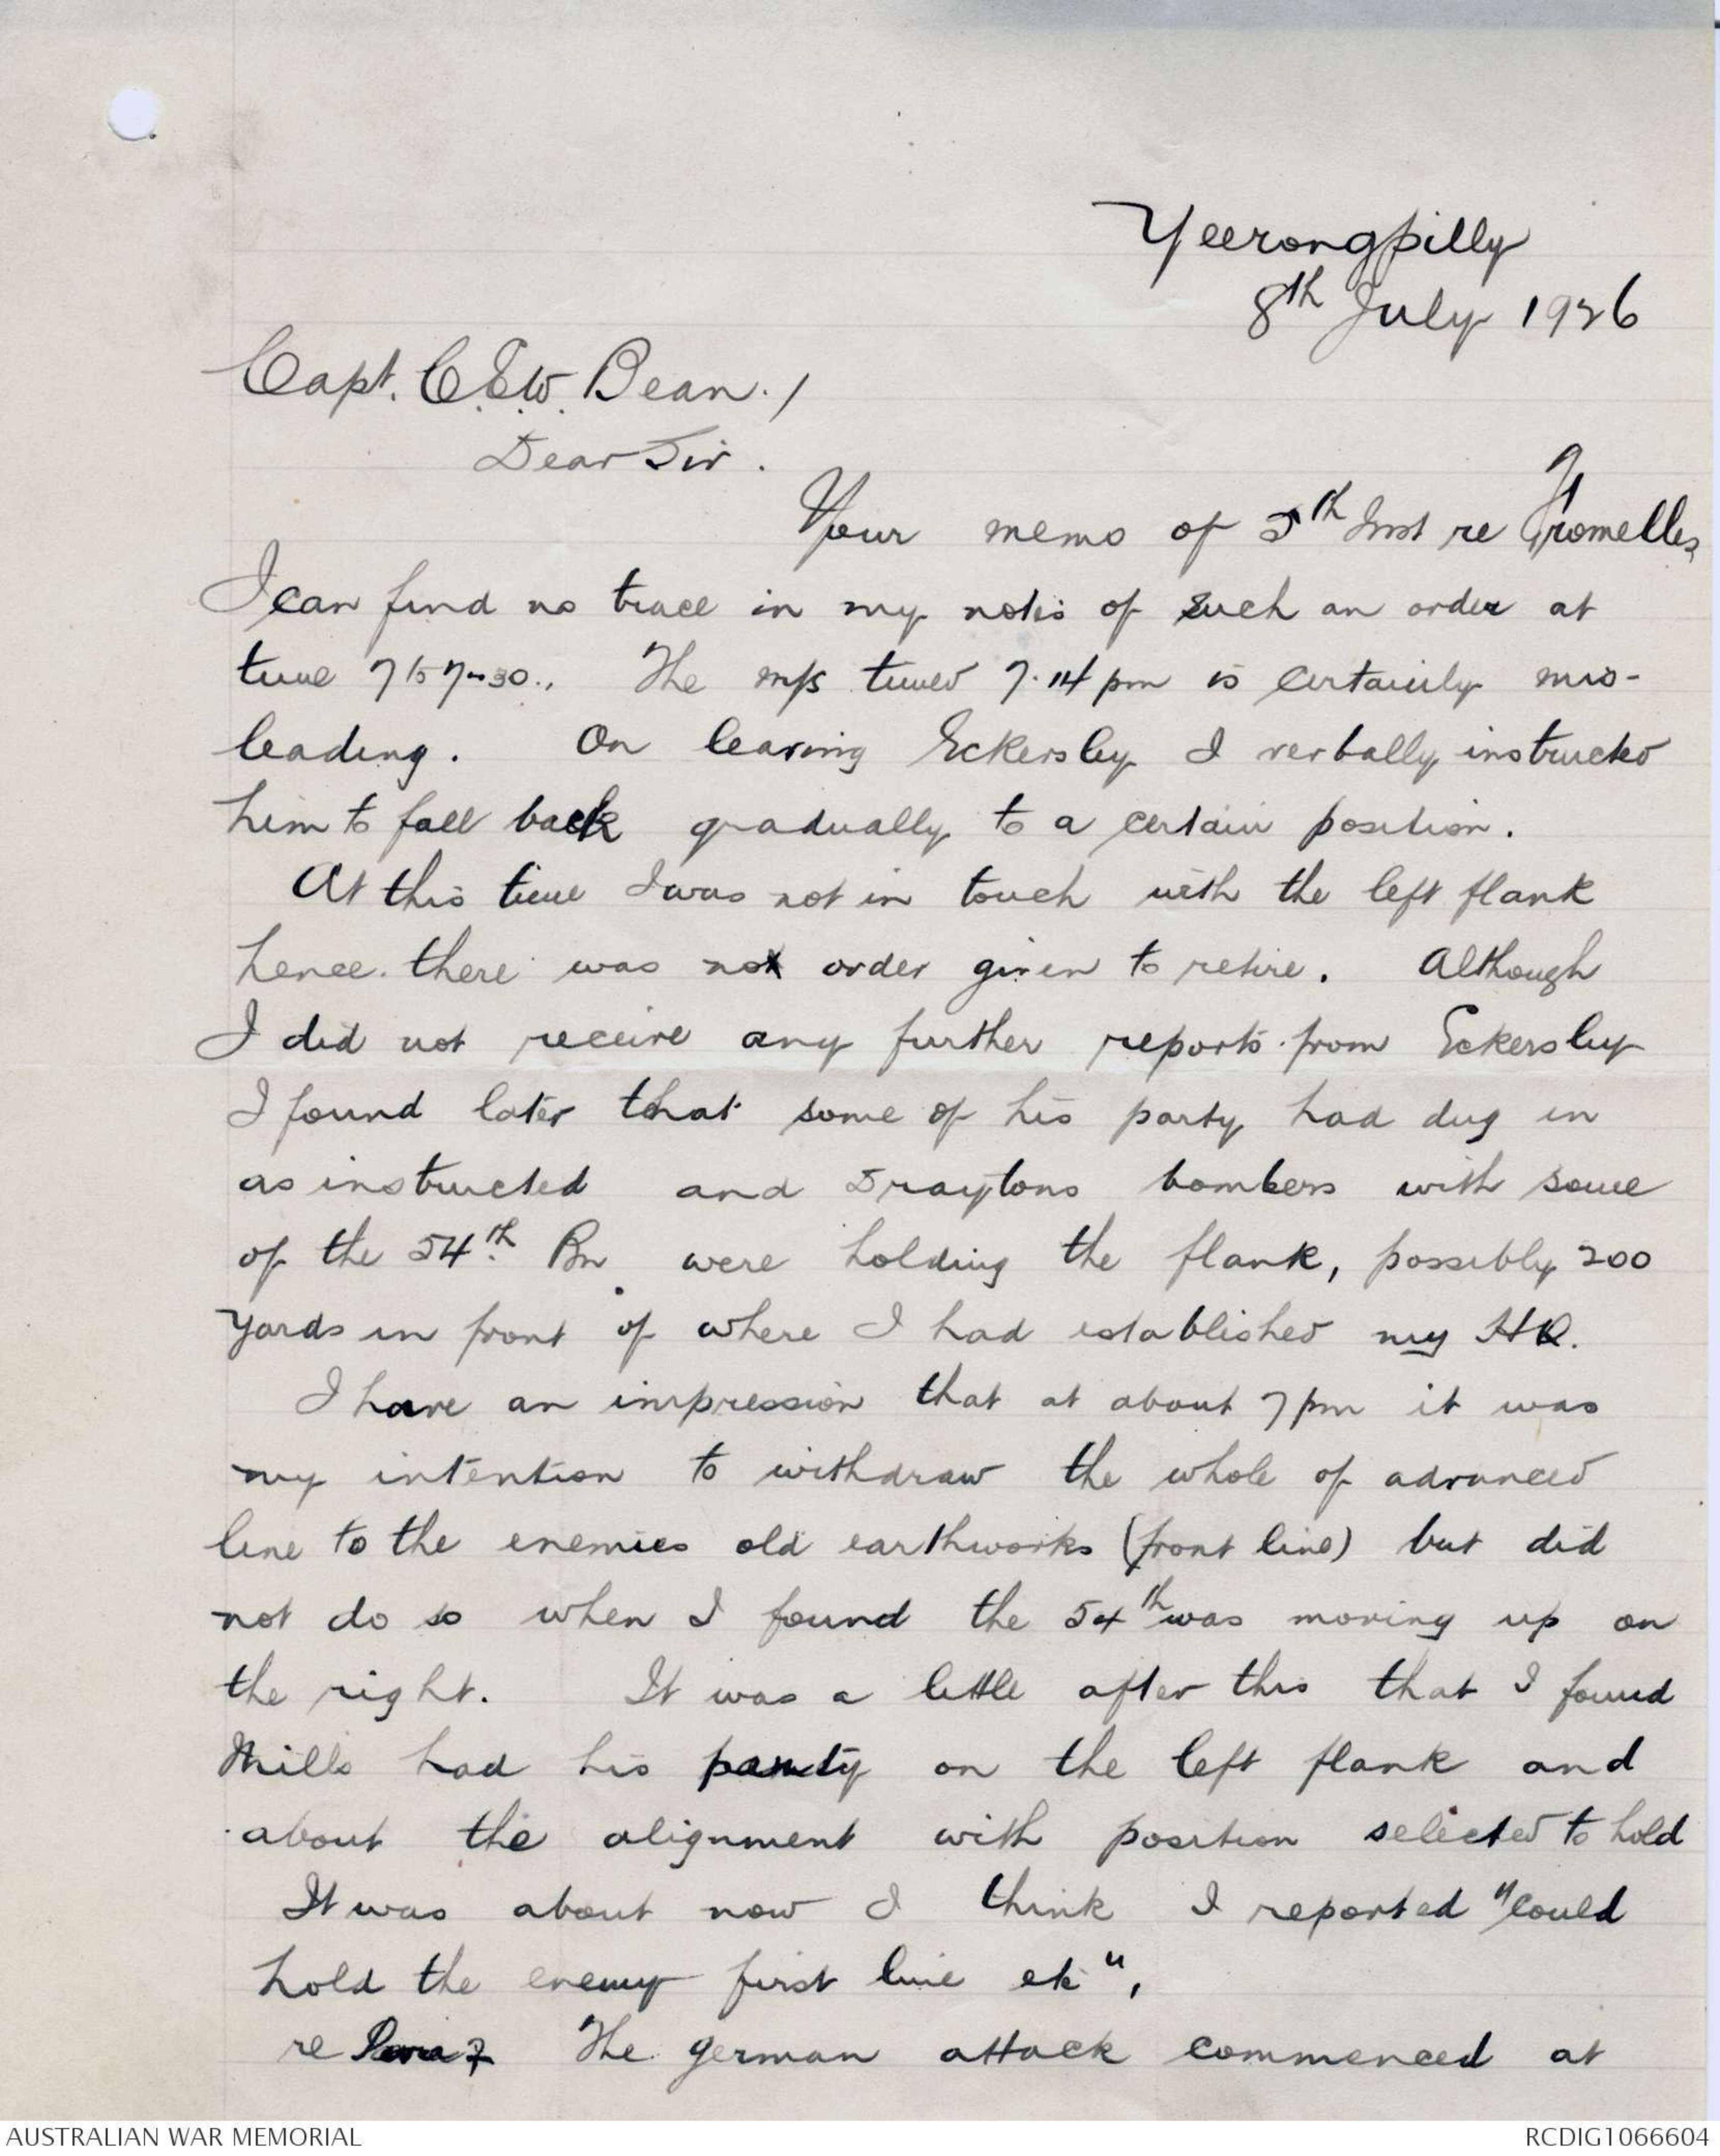 Yeerongpilly
8th July 1926
Capt. C.E.W. Bean./
Dear Sir.
Your memo of 5th Inst re Fromelles,
I can find no trace in my notes of such an order at
time 7 to 7-30., The m/s timed 7.14 pm is certainly mis-
leading. On leaving Eckersley I verbally instructed
him to fall back gradually to a certain position.
At this time I was not in touch with the left flank
hence there was no order given to retire. Although
I did not receive any further reports from Eckersley
I found later that some of his party had dug in
as instructed and Draytons bombers with some
of the 54th Bn were holding the flank, possibly 200
yards in front of where I had established my HQ.
I have an impression that at about 7 pm it was
my intention to withdraw the whole of advanced
line to the enemies old earthworks (front line) but did
not do so when I found the 54th was moving up on
the right. It was a little after this that I found
Mills had his party on the left flank and
about the alignment with position selected to hold
It was about now I think I reported "could
hold the enemy first line etc",
re Para 7 The german attack commenced at
AUSTRALIAN WAR MEMORIAL
RCDIG1066604